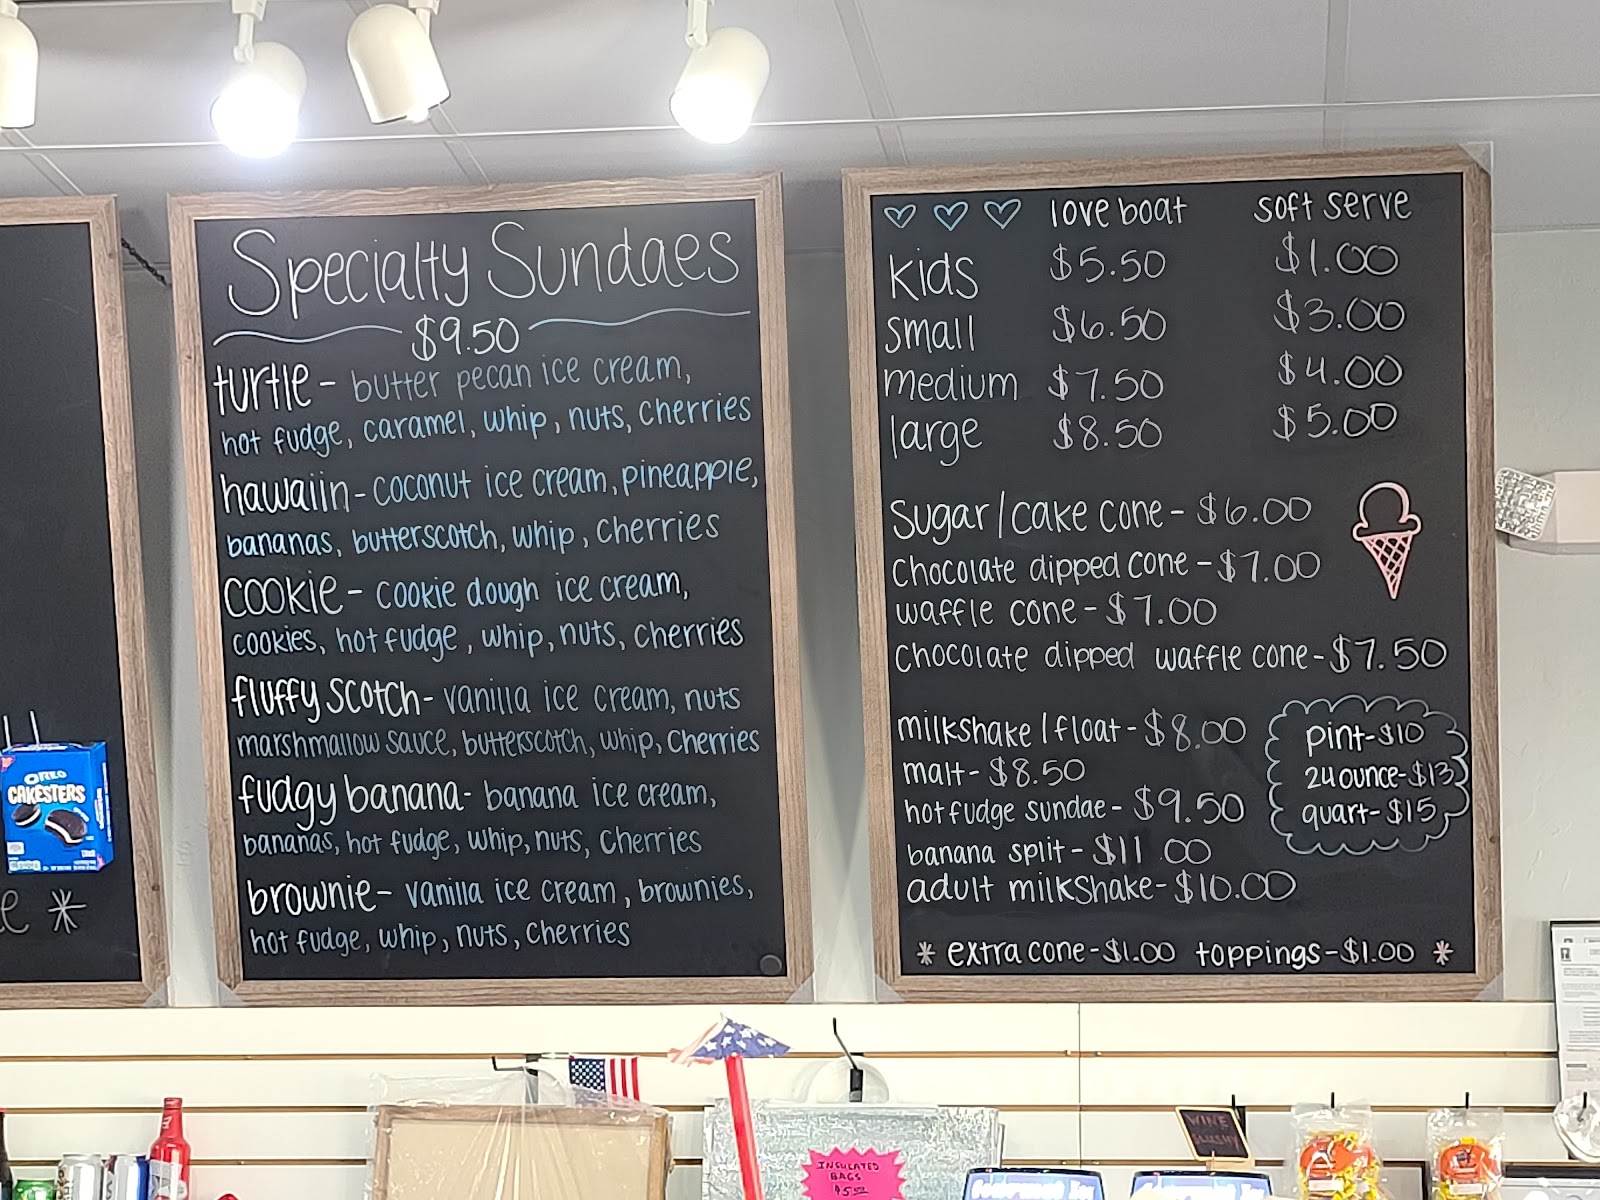 Specialty Sundaes
$9.50
turtle - butter pecan ice cream,
hot fudge, caramel, whip, nuts, cherries
hawaiin - coconut ice cream, pineapple,
bananas, butterscotch, whip, cherries
cookie - cookie dough ice cream,
cookies, hot fudge, whip, nuts, cherries
fluffy scotch - vanilla ice cream, nuts
marshmallow sauce, butterscotch, whip, cherries
fudgy banana - banana ice cream,
bananas, hot fudge, whip, nuts, cherries
brownie - vanilla ice cream, brownies,
hot fudge, whip, nuts, cherries
love boat soft serve
kids $5.50 $1.00
small $6.50 $3.00
medium $7.50 $4.00
large $8.50 $5.00
sugar/cake cone - $6.00
chocolate dipped cone - $7.00
waffle cone - $7.00
chocolate dipped waffle cone - $7.50
milkshake/float - $8.00
malt - $8.50
hot fudge sundae - $9.50
banana split - $11.00
adult milkshake - $10.00
pint - $10
24 ounce - $13
quart - $15
* extra cone - $1.00 toppings - $1.00 *
OREO
CAKESTERS
e *
INSULATED
BAGS
WINE
SLUSHY